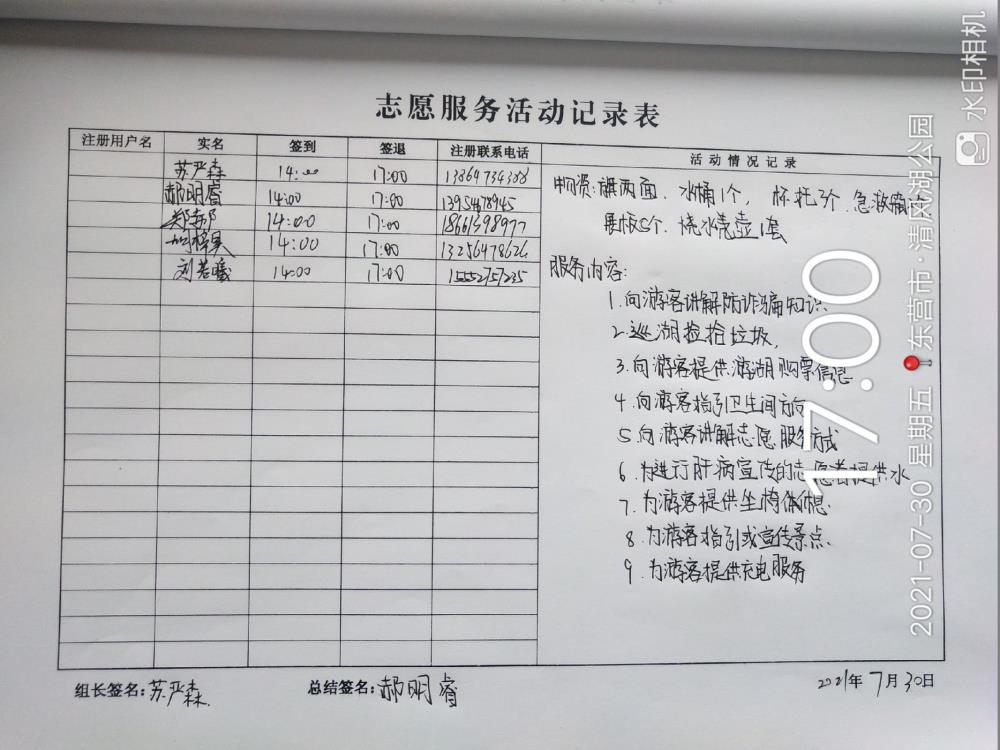 志愿服务活动记录表
注册用户名 实名 签到 签退 注册联系电话 活动情况记录
苏严森 14:00 17:00 13864734388
郝明睿 14:00 17:00 13954678945
14:00 17:00 18661398977
14:00 17:00 13256478626
刘若曦 14:00 17:00 15552757235
物资:旗两面、水桶1个, 杯托3个 急救
个、烧水壶1套
服务内容:
1.向游客讲解防诈骗知识
2.巡湖捡拾垃圾,
3.向游客提供游湖购票信息
4.向游客指引卫生间方向
5.向游客讲解志愿服务方式
6.为进行肝病宣传的志愿者提供水
7.为游客提供坐椅休息
8.为游客指引或宣传景点.
9.为游客提供充电服务
组长签名:苏严森. 总结签名:郝明睿 2021年7月30日
17:00
2021-07-30 星期五 东营市·清风湖公园
水印相机